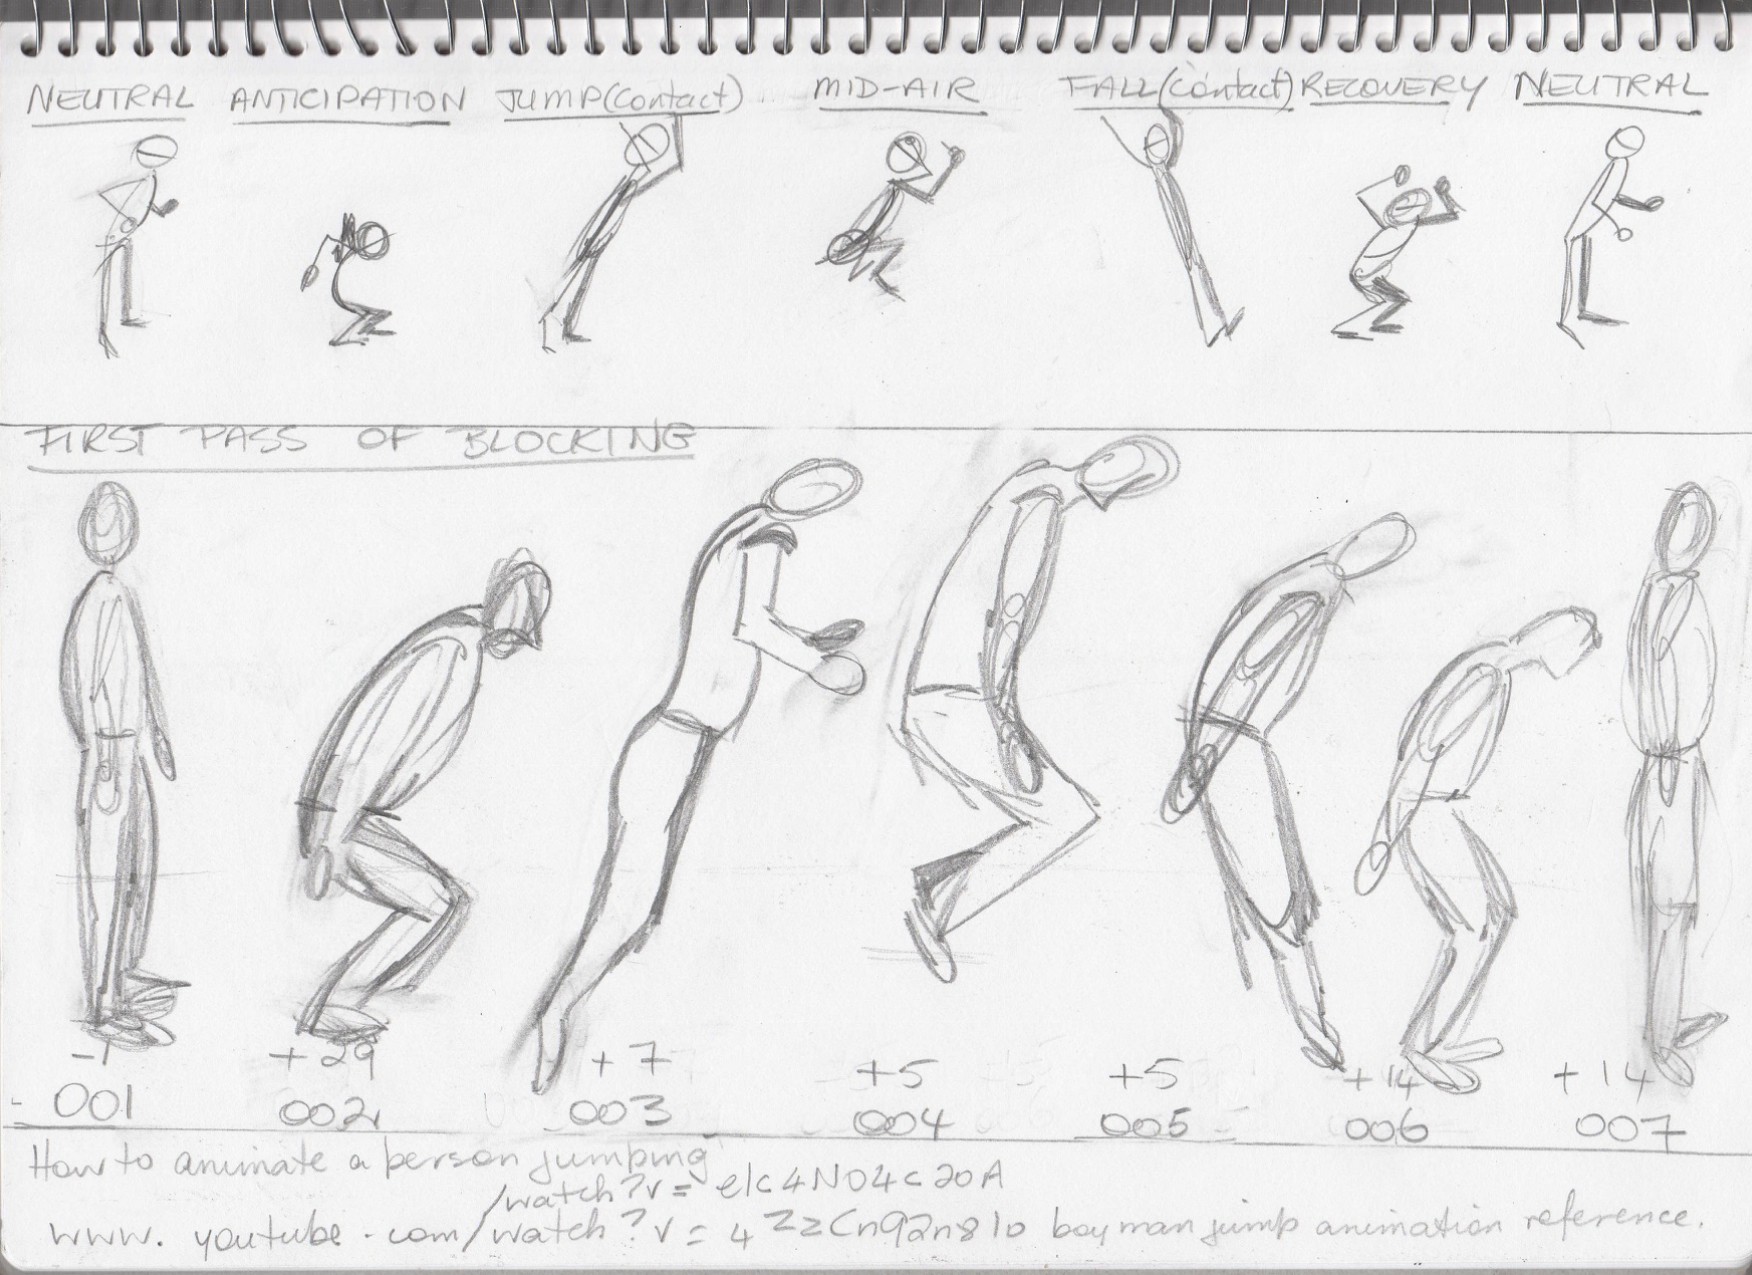 NEUTRAL ANTICIPATION JUMP(contact) MID-AIR FALL(contact) RECOVERY NEUTRAL
FIRST PASS OF BLOCKING
-1 +29 +7 +5 +5 +14 +14
001 002 003 004 005 006 007
How to animate a person jumping
/watch?v= e/c4NO4c20A
www.youtube.com/watch?v=4ZzCn92n810 boy man jump animation reference.